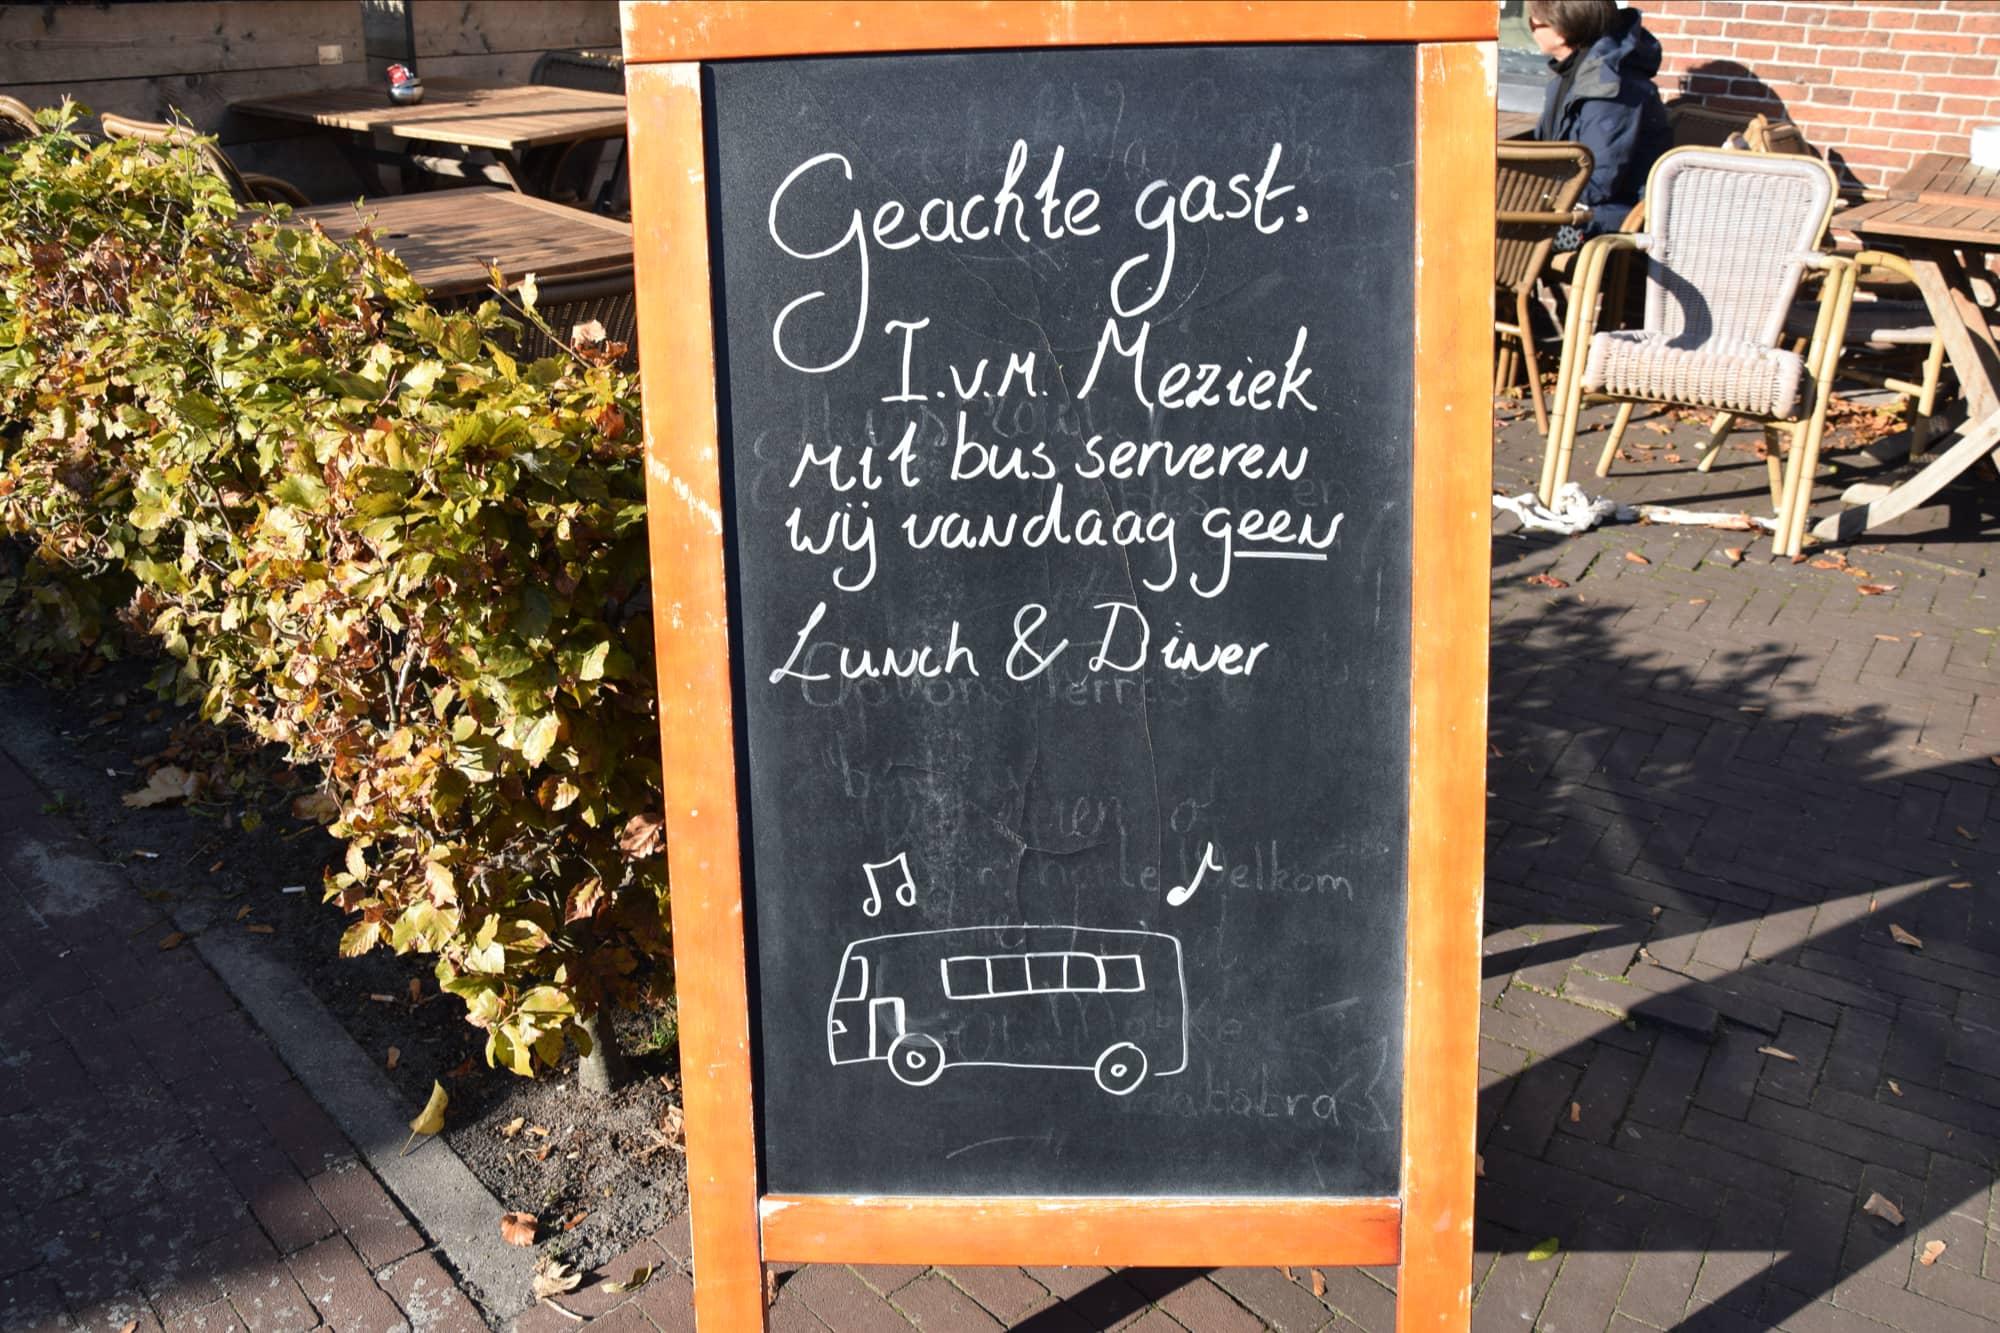 Geachte gast.
I.v.M. Meziek
mit bus serveren
wij vandaag geen
Lunch & Diner
Welkom